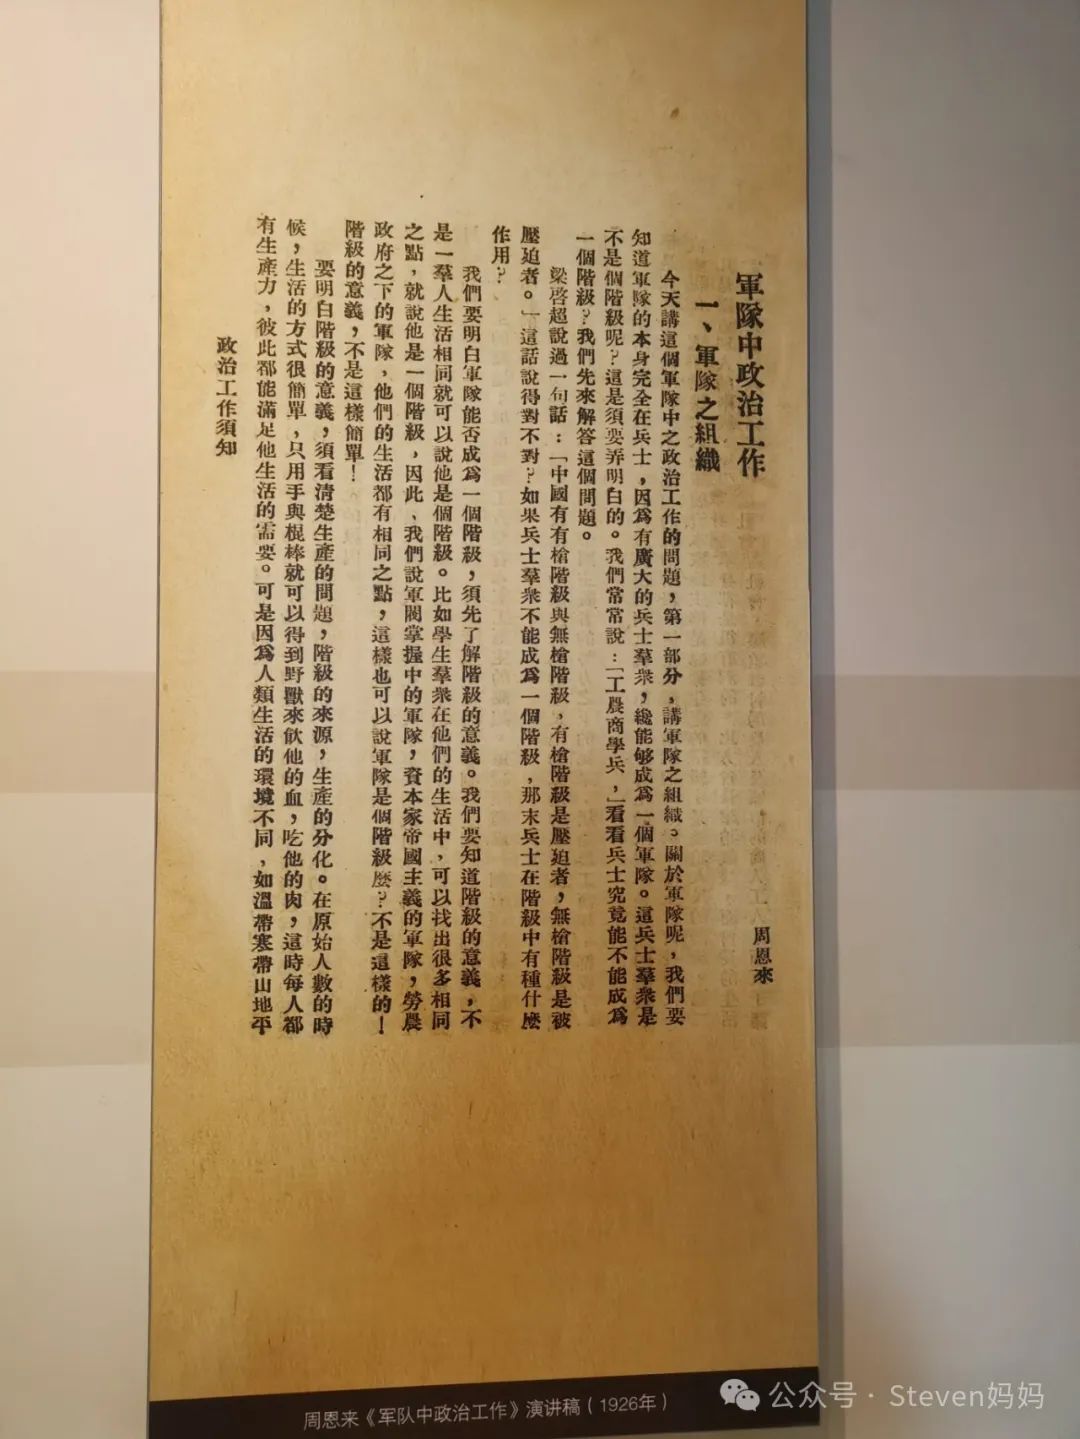 軍隊中政治工作
周恩來
一、軍隊之組織
今天講這個軍隊中之政治工作的問題，第一部分，講軍隊之組織。關於軍隊呢，我們要
知道軍隊的本身完全在兵士，因爲有廣大的兵士羣衆，纔能够成爲一個軍隊。這兵士羣衆是
不是個階級呢？這是須要弄明白的。我們常常說：「工農商學兵，」看看兵士究竟能不能成爲
一個階級？我們先來解答這個問題。
梁啓超說過一句話：「中國有有槍階級與無槍階級，有槍階級是壓迫者，無槍階級是被
壓迫者。」這話說得對不對？如果兵士羣衆不能成爲一個階級，那末兵士在階級中有種什麽
作用？
我們要明白軍隊能否成爲一個階級，須先了解階級的意義。我們要知道階級的意義，不
是一羣人生活相同就可以說他是個階級。比如學生羣衆在他們的生活中，可以找出很多相同
之點，就說他是一個階級，因此、我們說軍閥掌握中的軍隊，資本家帝國主義的軍隊，勞農
政府之下的軍隊，他們的生活都有相同之點，這樣也可以說軍隊是個階級麽？不是這樣的！
階級的意義，不是這樣簡單！
要明白階級的意義，須看清楚生產的問題，階級的來源，生產的分化。在原始人數的時
候，生活的方式很簡單，只用手與棍棒就可以得到野獸來飲他的血，吃他的肉，這時每人都
有生產力，彼此都能滿足他生活的需要。可是因爲人類生活的環境不同，如溫帶寒帶山地平
政治工作須知
周恩来《军队中政治工作》演讲稿（1926年）
公众号·Steven妈妈